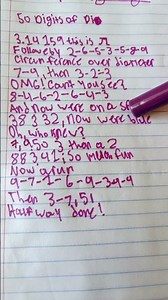 50 Digits of Pi
3.14159 this is π
Followed by 2-6-5-3-5-8-9
Circumference over diameter
7-9, then 3-2-3
OMG! Can't you see?
8-4-6-2-6-4-3
And now were on a
38332, now were blue
Oh, who knew?
7, 950 then a 2
88341, so much fun
Now a run
9-7-1-6-9-3-9-9
Then 3-7, 51
Half way done!